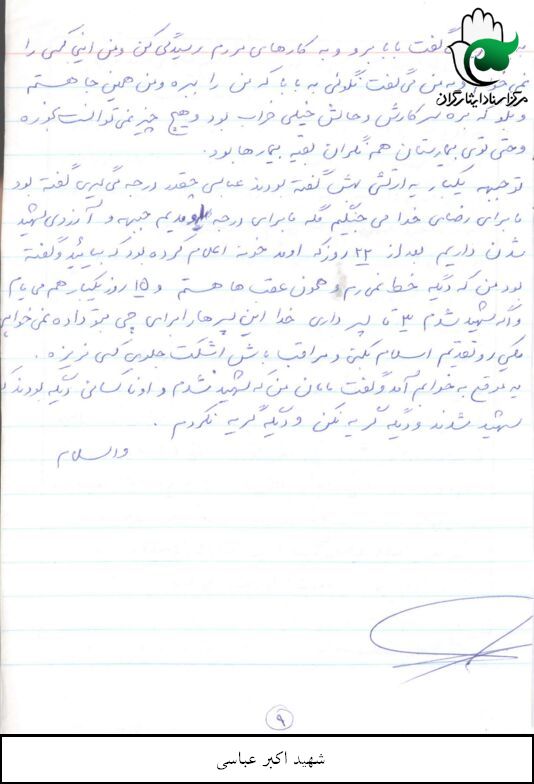 مرکز اسناد ایثارگران
گفت بابا برو و به کارهای مردم رسیدگی کن ومن اینی کسی را
به من می گفت نگوئی به بابا که من را ببره ومن همین جا هستم
و بلو که بره سر کارش و حالش خیلی خراب بود و هیچ چیز نمی توانست بخوره
وحتی توی بیمارستان هم نگران بقیه بیمارها بود.
تو جبهه یکبار یه ارتشی بهش گفته بودند عباسی چقدر درجه می گیری گفته بود
ما برای رضای خدا می جنگیم مگه ما برای درجه اومدیم جبهه و آرزوی شهید
شدن داریم بعد از ۲۲ روز که اومد خونه اعلام کرده بود که بیائید و گفته
بود من که دیگه خط نمی رم و همون عقب ها هستم و ۱۵ روز یکبار هم می یام
واگه شهید شدم ۳ تا پسر داری خدا این پسرها را برای چی بتو داده نمی خواهی
یکی رو تقدیم اسلام بکنی و مراقب باش اشکت جلوی کسی نریزه.
یه موقع به خوابم آمد و گفت مامان من که شهید نشدم و اونا کسانی دیگه بودند که
شهید شدند و دیگه گریه نکن و دیگه گریه نکردم.
والسلام
۹
شهید اکبر عباسی